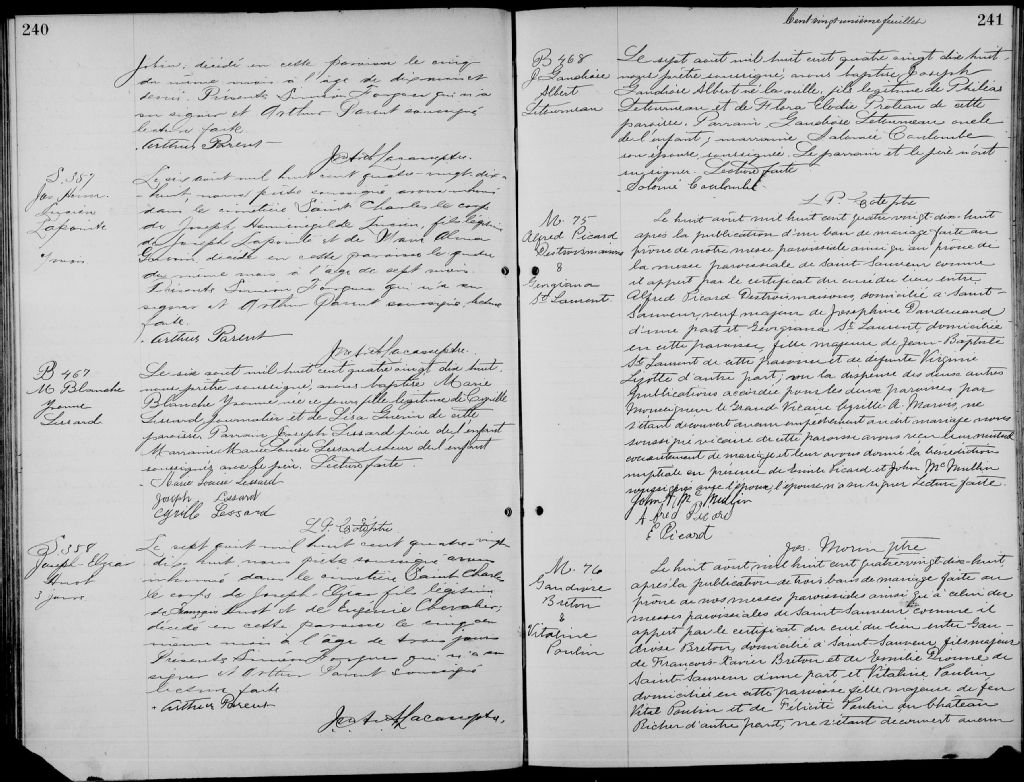 240
John, décédé en cette paroisse le cinq
du même mois à l'âge de dix sept et
demi. Présents Siméon Forgues qui n'a
su signer et Arthur Parent soussigné
lecture faite
Arthur Parent
S. 357
Jos. Herm.
Lucien
Lapointe
7 mois
Le six août mil huit cent quatre-vingt dix-
huit, nous prêtre soussigné avons inhumé
dans le cimetière Saint Charles le corps
de Joseph, Herménégilde Lucien, fils légitime
de Joseph Lapointe et de Marie Alma
décédé en cette paroisse le quatre
du même mois à l'âge de sept mois
Présents Siméon Forgues qui n'a su
signer et Arthur Parent soussigné, lecture
faite.
Arthur Parent
B 467
M Blanche
Yvonne
Lessard
Le six août mil huit cent quatre vingt dix huit,
nous prêtre soussigné, avons baptisé Marie
Blanche Yvonne, née ce jour, fille légitime de Cyrille
Lessard Journalier et de Lisa Guérin de cette
paroisse. Parrain Joseph Lessard frère de l'enfant
Marraine Marie Louise Lessard soeur de l'enfant
soussignés avec le père. Lecture faite.
Marie Louise Lessard
Joseph Lessard
Cyrille Lessard
S. 358
Joseph Elzéar
3 jours
Le sept août mil huit cent quatre vingt
dix huit nous prêtre soussigné avons
inhumé dans le cimetière Saint Charles
le corps de Joseph Elzéar, fils légitime
de François et de Eugénie Chevalier,
décédé en cette paroisse le cinq du
même mois à l'âge de trois jours
Présents Siméon Forgues qui n'a su
signer et Arthur Parent soussigné
lecture faite
Arthur Parent
Cent vingt unième feuillet
241
B 468
J Gaudiose
Albert
Létourneau
Le sept août mil huit cent quatre vingt dix huit
nous prêtre soussigné, avons baptisé Joseph
Gaudiose Albert né la veille, fils légitime de Philéas
Létourneau et de Flora Elodie Trotteau de cette
paroisse. Parrain, Gaudiose Létourneau oncle
de l'enfant; marraine Salomée Coulombe
son épouse, soussignée. Le parrain et le père n'ont
su signer. Lecture faite
Salomé Coulombe
M. 75
Alfred Picard
Destroismaisons
&
Georgiana
St Laurent
Le huit août mil huit cent quatre vingt-dix-huit
après la publication d'un ban de mariage faite au
prône de notre messe paroissiale ainsi qu'au prône de
la messe paroissiale de Saint-Sauveur comme
il appert par le certificat du curé du lieu entre
Alfred Picard Destroismaisons, domicilié à Saint-
Sauveur, veuf majeur de Joséphine Dandurand
d'une part et Georgiana St Laurent, domiciliée
en cette paroisse, fille majeure de Jean-Baptiste
St Laurent de cette paroisse et de défunte Virginie
Lizotte d'autre part; vu la dispense des deux autres
publications accordée pour les deux paroisses par
Monseigneur le Grand Vicaire Cyrille A. Marois, ne
s'étant découvert aucun empêchement au dit mariage nous
soussigné vicaire de cette paroisse avons reçu leur mutuel
consentement de mariage et leur avons donné la bénédiction
nuptiale en présence de Emile Picard et John McMullin
soussignés avec l'époux, l'épouse n'a su signer Lecture faite.
John McMullin
Alfred Picard
E Picard
Jos. Morin ptre
M. 76
Gaudiose
Breton
&
Vitaline
Poulin
Le huit août mil huit cent quatre vingt dix huit,
après la publication de trois bans de mariage faite au
prône de nos messes paroissiales ainsi qu'à celui des
messes paroissiales de Saint-Sauveur comme il
appert par le certificat du curé du lieu entre Gau-
diose Breton, domicilié à Saint-Sauveur, fils majeur
de François-Xavier Breton et de Emilie Dionne de
Saint-Sauveur d'une part et Vitaline Poulin
domiciliée en cette paroisse fille majeure de feu
Vital Poulin et de Félicité Poulin du Château
Richer d'autre part, ne s'étant découvert aucun